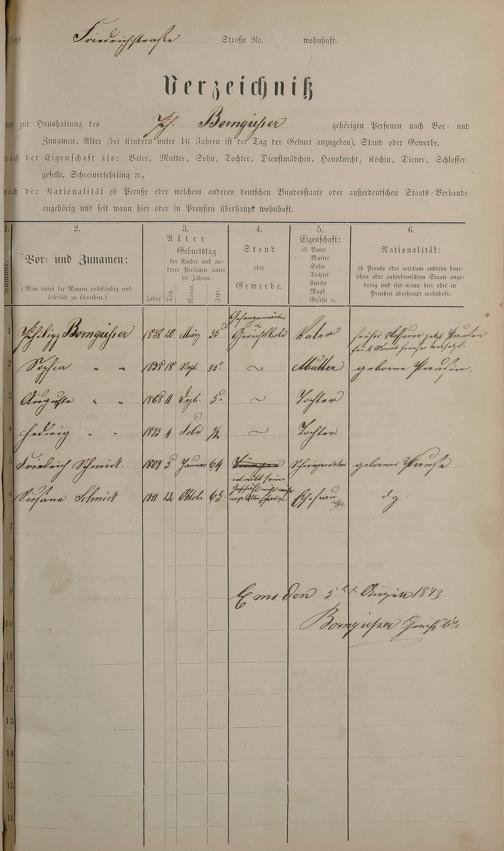 Friedrichstraße Straße No. wohnhaft.
Verzeichniß
der zur Haushaltung des Ph. Borngießer gehörigen Personen nach Vor- und
Zunamen, Alter (bei Kindern unter 16 Jahren ist der Tag der Geburt anzugeben), Stand oder Gewerbe,
nach der Eigenschaft als: Vater, Mutter, Sohn, Tochter, Dienstmädchen, Hausknecht, Köchin, Diener, Schlosser-
geselle, Schreinerlehrling ꝛc.,
nach der Nationalität ob Preuße oder welchem anderen deutschen Bundesstaate oder außerdeutschen Staats-Verbande
angehörig und seit wann hier oder in Preußen überhaupt wohnhaft.
1. 2. 3. 4. 5. 6.
Nummer.
Vor- und Zunamen:
(Man bittet die Namen vollständig und leserlich zu schreiben.)
Alter
Geburtstag
der Kinder und anderer Personen unter 16 Jahren.
Jahre Tag. Monat. Jahr.
Stand
oder
Gewerbe.
Eigenschaft:
ob Vater
Mutter
Sohn
Tochter
Knecht
Magd
Geselle u.
Nationalität:
ob Preuße oder welchem anderen deut-
schen oder außerdeutschen Staate ange-
hörig und seit wann hier oder in
Preußen überhaupt wohnhaft.
1 Philipp Borngießer 1838 20 März 35 Gerichtsbote Vater
2 Sophia " " 1838 18 Sept 35 ~ Mutter geborene Preußin.
3 Auguste " " 1868 11 Dezb. 5 ~ Tochter
4 Hedwig " " 1873 4 Febr ½ ~ Tochter
5 Friedrich Schmidt 1809 5 Januar 64 geborener Preuße
6 Susana Schmidt 1811 22 Oktob 63 Ehefrau dg.
7
8
9 Ems den 5 August 1873
10 Borngießer
11
12
13
14
15
16